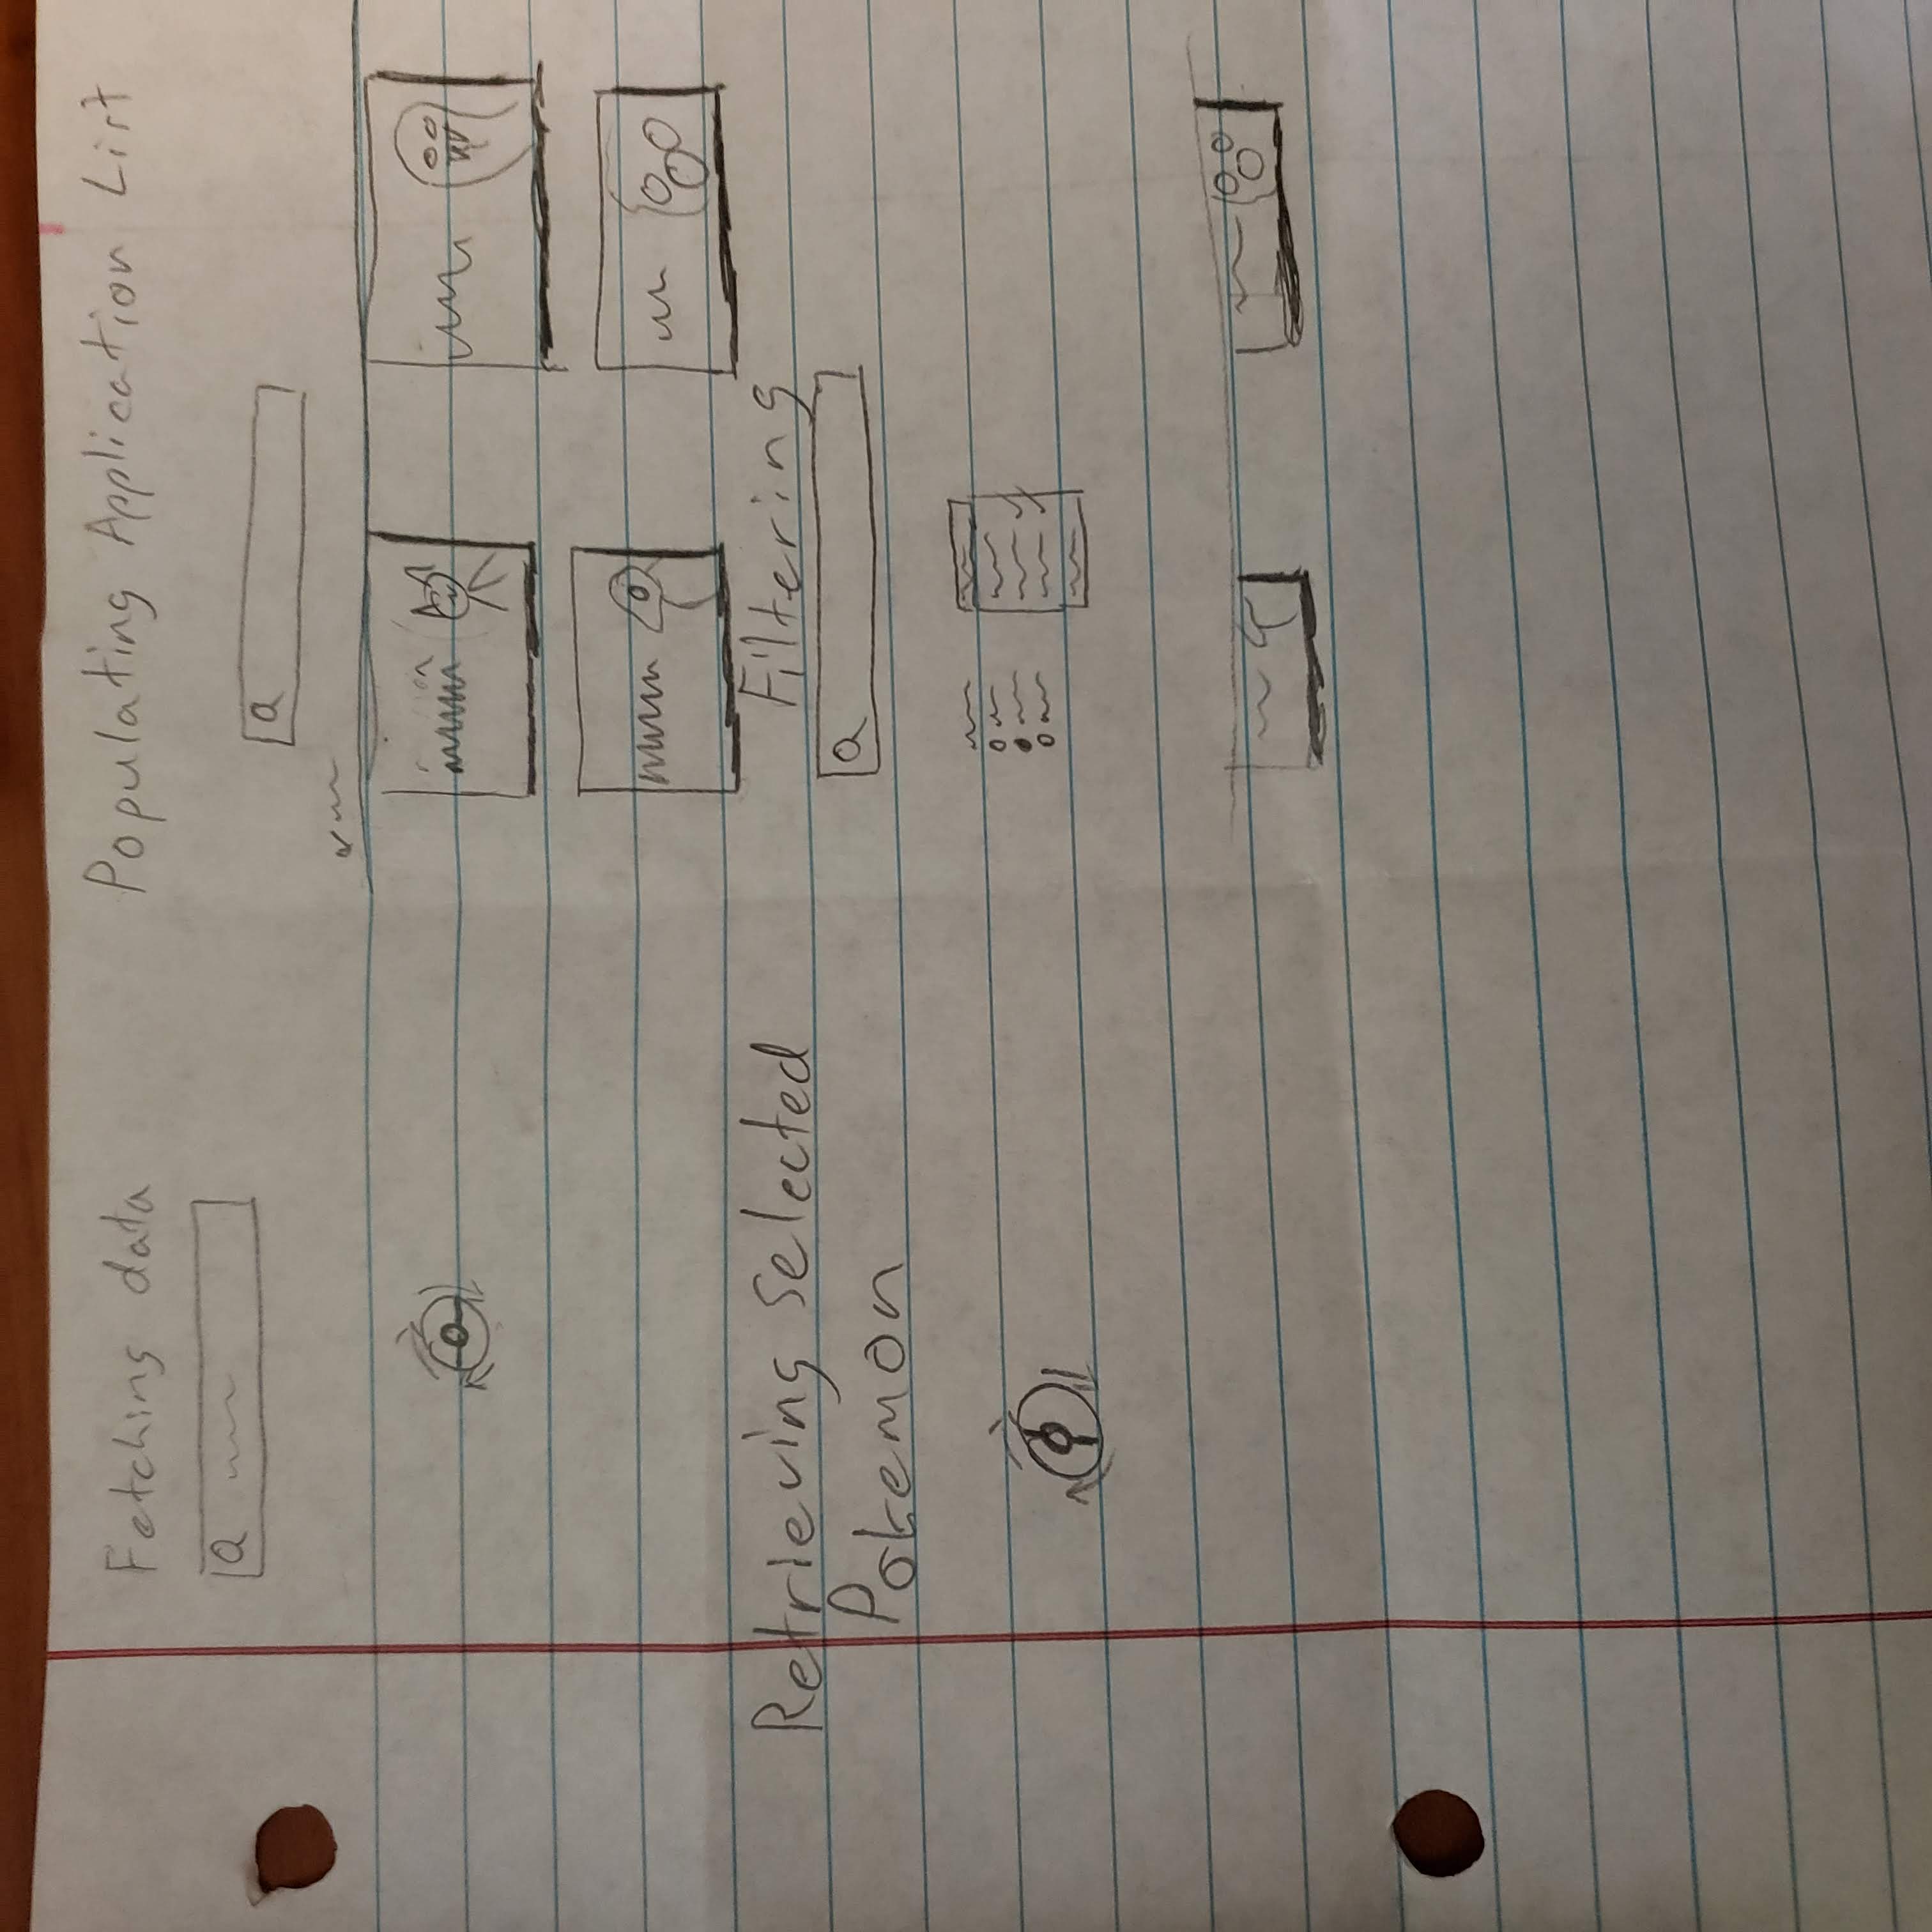 Fetching data
Populating Application List
Retrieving Selected
Pokemon
Filtering